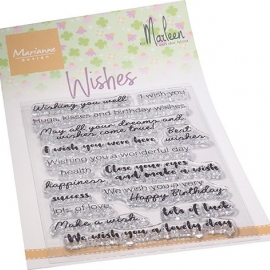 Marianne
DESIGN
Marleen
Wishes
Wishing you well
I wish you
Hugs, kisses and birthday wishes
May all your dreams and
wishes come true!
Best
wishes
I wish you were here
Wishing you a wonderful day
health
Close your eyes
and make a wish
happiness
We wish you a very
success
Happy Birthday
lots of love
lots of luck
Make a wish
We wish you a lovely day